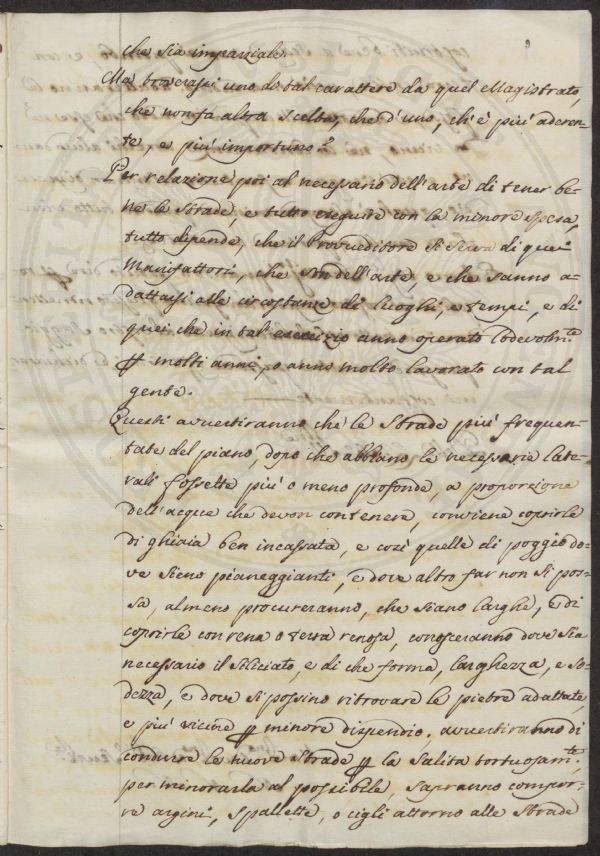 9
che sia imparziale.
Ma troverassi uno di tal carattere da quel Magistrato,
che non fa altra scelta, che d'uno, ch'è più aderen-
te, e più importuno?
Per relazione poi al necessario dell'arte di tener be-
ne le strade, e tutto eseguire con la minore spesa,
tutto dipende, che il Provveditore si serva di quei
Manifattori, che son dell'arte, e che sanno a-
dattarsi alle circostanze di luoghi, e tempi, e di
quei che in tal esercizio anno operato lodevolm.te
p molti anni, o anno molto lavorato con tal
gente.
Questi avvertiranno che le strade più frequen-
tate del piano, dopo che abbiano le necessarie late-
rali fossette più o meno profonde, a proporzione
dell'acque che devon contenere, conviene coprirle
di ghiaia ben incassata, e così quelle di poggio do-
ve sieno pianeggianti, e dove altro far non si pos-
sa, almeno procureranno, che siano larghe, e di
coprirle con rena o terra renosa, conosceranno dove sia
necessario il siliciato, e di che forma, larghezza, e so-
dezza, e dove si possino ritrovare le pietre adattate,
e più vicine p minore dispendio. avvertiranno di
condurre le nuove strade p la salita tortuosam.te
per minorarla al possibile, sapranno compor-
re argini, spallette, o cigli attorno alle strade